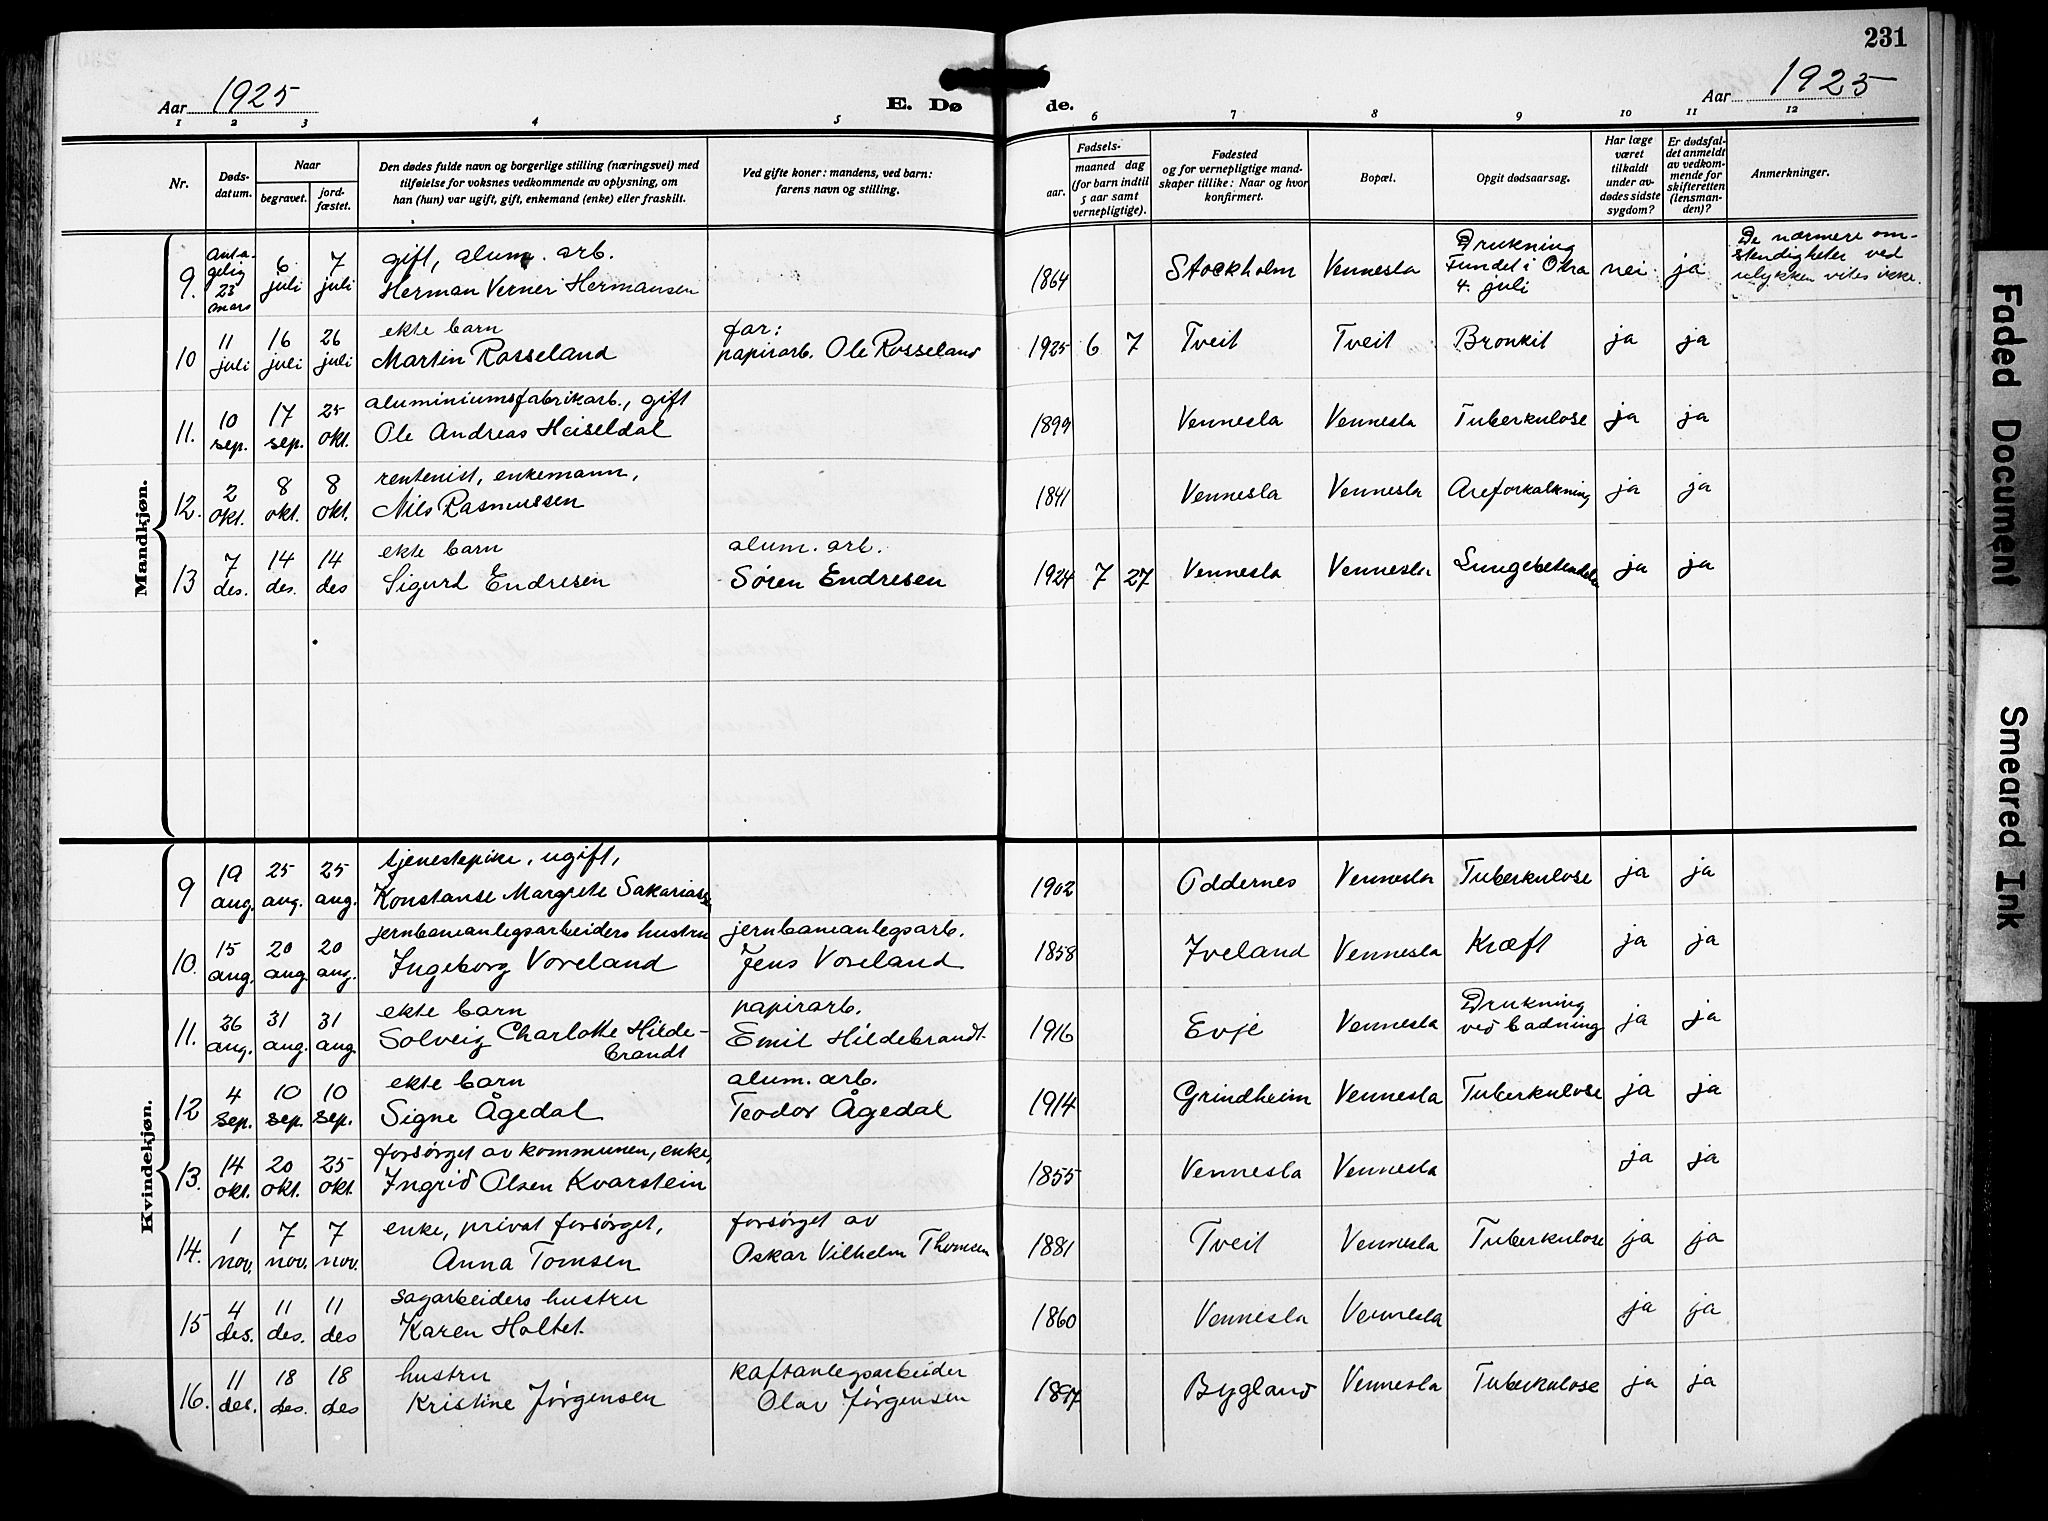 231
Aar 1925
E. Dø de.
Aar 1925
1 2 3 4 5 6 7 8 9 10 11 12
Nr.
Døds-
datum.
Naar
begravet.
jord-
fæstet.
Den dødes fulde navn og borgerlige stilling (næringsvei) med
tilføielse for voksnes vedkommende av oplysning, om
han (hun) var ugift, gift, enkemand (enke) eller fraskilt.
Ved gifte koner: mandens, ved barn:
farens navn og stilling.
Fødsels-
aar.
maaned dag
(for barn indtil
5 aar samt
vernepligtige).
Fødested
og for vernepligtige mand-
skaper tillike: Naar og hvor
konfirmert.
Bopæl.
Opgit dødsaarsag.
Har læge
været
tilkaldt
under av-
dødes sidste
sygdom?
Er dødsfal-
det anmeldt
av vedkom-
mende for
skifteretten
(lensman-
den)?
Anmerkninger.
Mandkjøn.
9. Anta-
gelig
23
mars
6
juli
7
juli
gift, alum. arb.
Herman Verner Hermansen
1864 Stockholm Vennesla
Drukning
Fundet i Otra
4. juli
nei ja
De nærmere om-
stendigheter ved
ulykken vites ikke.
10 11
juli
16
juli
26
juli
ekte barn
Martin Rosseland
far:
papirarb. Ole Rosseland
1925 6 7 Tveit Tveit Bronkit ja ja
11. 10
sep.
17
sep.
25
okt.
aluminiumsfabrikarb., gift
Ole Andreas Heiseldal
1899 Vennesla Vennesla Tuberkulose ja ja
12. 2
okt.
8
okt.
8
okt.
rentenist, enkemann,
Nils Rasmussen
1841 Vennesla Vennesla Areforkalkning ja ja
13 7
des.
14
des.
14
des
ekte barn
Sigurd Endresen
alum. arb.
Sören Endresen
1924 7 27 Vennesla Vennesla ja ja
Kvindekjøn.
9 19
aug.
25
aug.
25
aug.
tjenestepike, ugift,
Konstanse Margrete
1902 Oddernes Vennesla Tuberkulose ja ja
10. 15
aug.
20
aug
20
aug.
jernbaneanlegsarbeiders hustru
Ingeborg Voreland
jernbaneanlegsarb.
Jens Voreland
1858 Iveland Vennesla Kræft ja ja
11. 26
aug.
31
aug.
31
aug
ekte barn
Solveig Charlotte Hilde-
brandt
papirarb.
Emil Hildebrandt.
1916 Evje Vennesla
Drukning
ved badning
ja ja
12 4
sep.
10
sep.
10
sep.
ekte barn
Signe Ågedal
alum. arb.
Teodor Ågedal
1914 Grindheim Vennesla Tuberkulose ja ja
13. 14
okt.
20
okt.
25
okt
forsørget av kommunen, enke,
Ingrid Olsen Kvarstein
1855 Vennesla Vennesla ja ja
14. 1
nov.
7
nov.
7
nov.
enke, privat forsørget,
Anna Tomsen
forsørget av
Oskar Vilhelm Thomsen
1881 Tveit Vennesla Tuberkulose ja ja
15 4
des.
11
des.
11
des
sagarbeiders hustru
Karen Holtet.
1860 Vennesla Vennesla ja ja
16. 11
des.
18
des.
18
des
hustru
Kristine Jørgensen
kaftanlegsarbeider
Olav Jørgensen
1897 Bygland Vennesla Tuberkulose ja ja
Faded Document
Smeared Ink